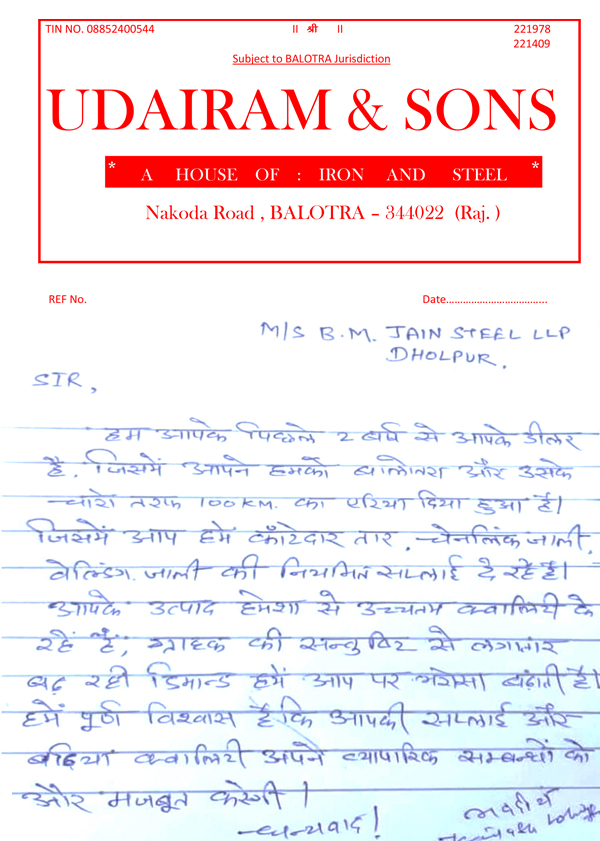 TIN NO. 08852400544 || श्री || 221978
221409
Subject to BALOTRA Jurisdiction
UDAIRAM & SONS
* A HOUSE OF : IRON AND STEEL *
Nakoda Road , BALOTRA – 344022 (Raj. )
REF No. Date.................................
M/S B.M. JAIN STEEL LLP
DHOLPUR.
SIR,
हम आपके पिछले 2 बर्ष से आपके डीलर
है. जिसमें आपने हमको बालोतरा और उसके
चारो तरफ 100 KM. का एरिया दिया हुआ है।
जिसमें आप हमें काँटेदार तार, चेनलिंक जाली,
वेल्डिंग जाली की नियमित सप्लाई दे रहे है।
आपके उत्पाद हमेशा से उच्चतम क्वालिटी के
रहें हैं, ग्राहक की सन्तुष्टि से लगातार
बढ़ रही डिमान्ड हमें आप पर भरोसा बढ़ाती है।
हमें पूर्ण विश्वास है कि आपकी सप्लाई और
बढ़िया क्वालिटी अपने व्यापारिक सम्बन्धों को
और मजबूत करेगी।
धन्यवाद! भवदीय